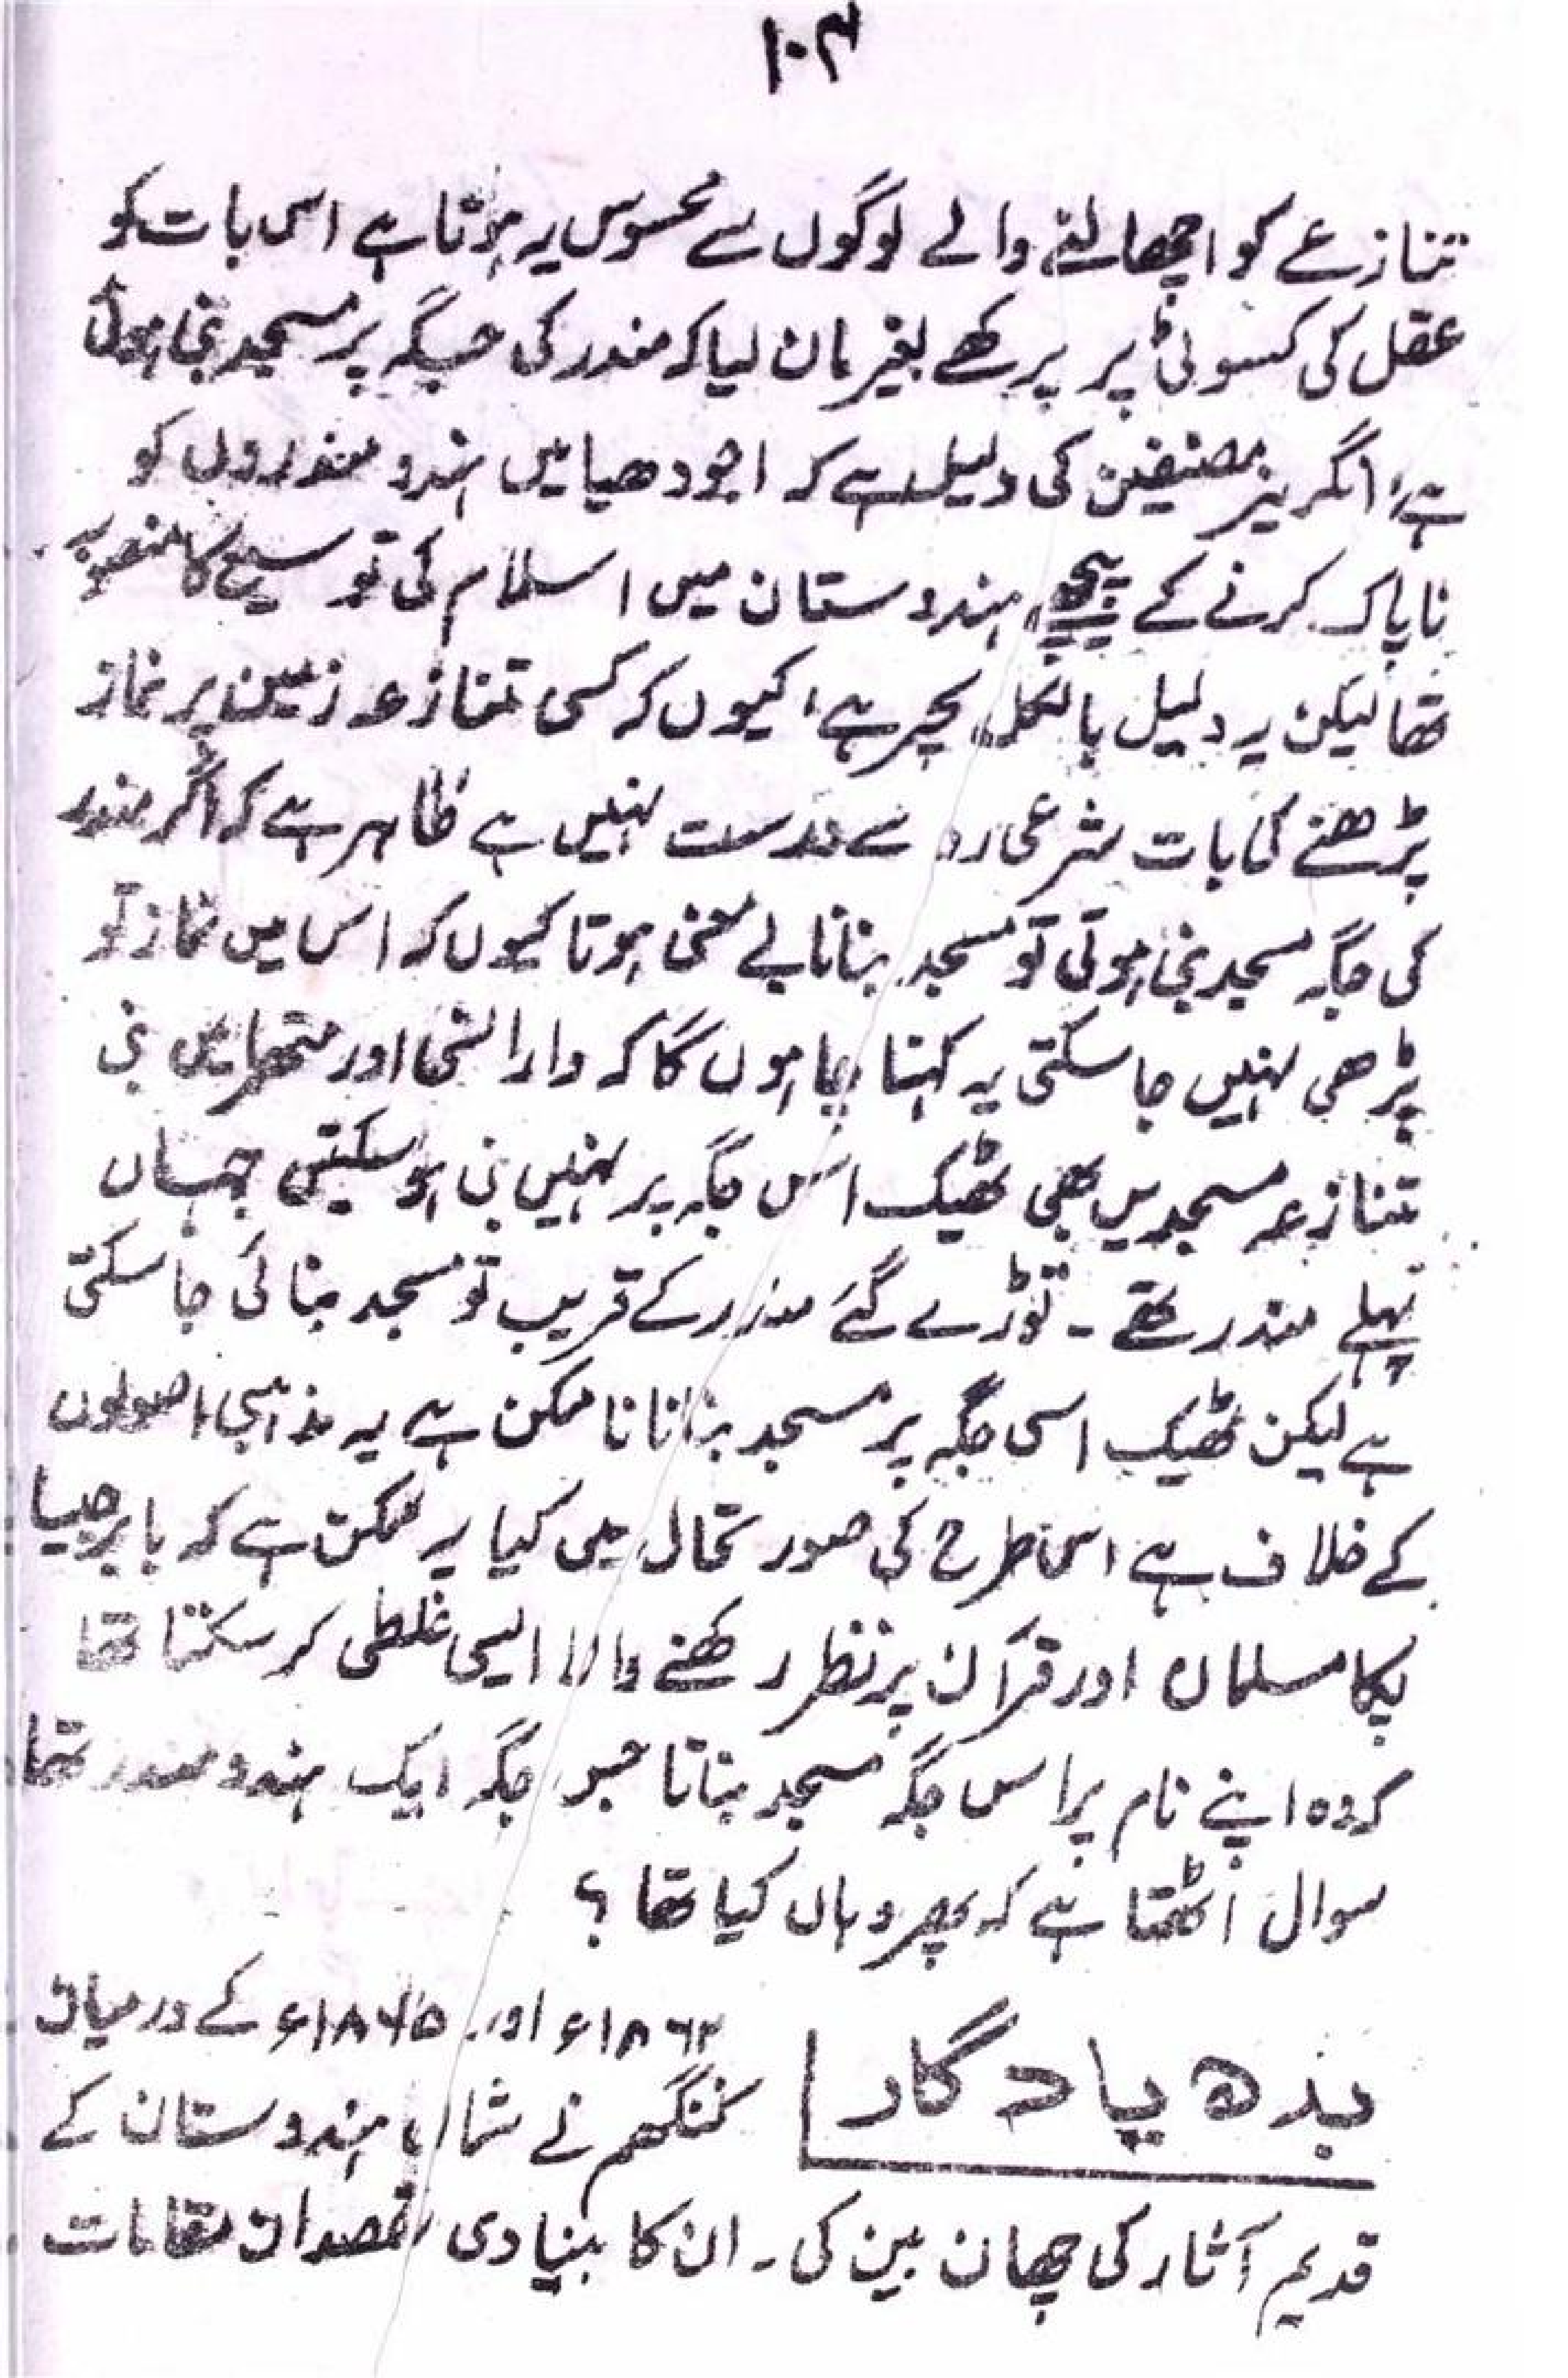 ۱۰۴
تنازعے کو اچھالنے والے لوگوں سے محسوس یہ ہوتا ہے اس بات کو
عقل کی کسوٹی پر پرکھے بغیر مان لیا کہ مندر کی جگہ پر مسجد بنی ہوئی
ہے، انگریز مصنفین کی دلیل ہے کہ اجودھیا میں ہندو مندروں کو
ناپاک کرنے کے پیچھے، ہندوستان میں اسلام کی توسیع کا منصوبہ
تھا لیکن یہ دلیل بالکل لچر ہے، کیوں کہ کسی تنازعہ زمین پر نماز
پڑھنے کی بات شرعی رو سے درست نہیں ہے ظاہر ہے کہ اگر مندر
کی جگہ مسجد بنی ہوتی تو مسجد بنانا بے معنی ہوتا کیوں کہ اس میں نماز تو
پڑھی نہیں جا سکتی یہ کہنا چاہوں گا کہ وارانسی اور متھرا میں بنی
تنازعہ مسجدیں بھی ٹھیک اس جگہ پر نہیں بنی ہو سکتیں جہاں
پہلے مندر تھے ۔ توڑے گئے مندر کے قریب تو مسجد بنائی جا سکتی
ہے لیکن ٹھیک اسی جگہ پر مسجد بنانا نا ممکن ہے یہ مذہبی اصولوں
کے خلاف ہے اس طرح کی صورتحال میں کیا یہ ممکن ہے کہ بابر جیسا
پکا مسلمان اور قرآن پر نظر رکھنے والا ایسی غلطی کر سکتا تھا
کہ وہ اپنے نام پر اس جگہ مسجد بناتا جس جگہ ایک ہندو مندر تھا
سوال اٹھتا ہے کہ پھر وہاں کیا تھا ؟
بدھ یادگار
۱۸۶۲ء اور ۱۸۶۵ء کے درمیان
کننگھم نے شمالی ہندوستان کے
قدیم آثار کی چھان بین کی ۔ ان کا بنیادی مقصد ان مقامات